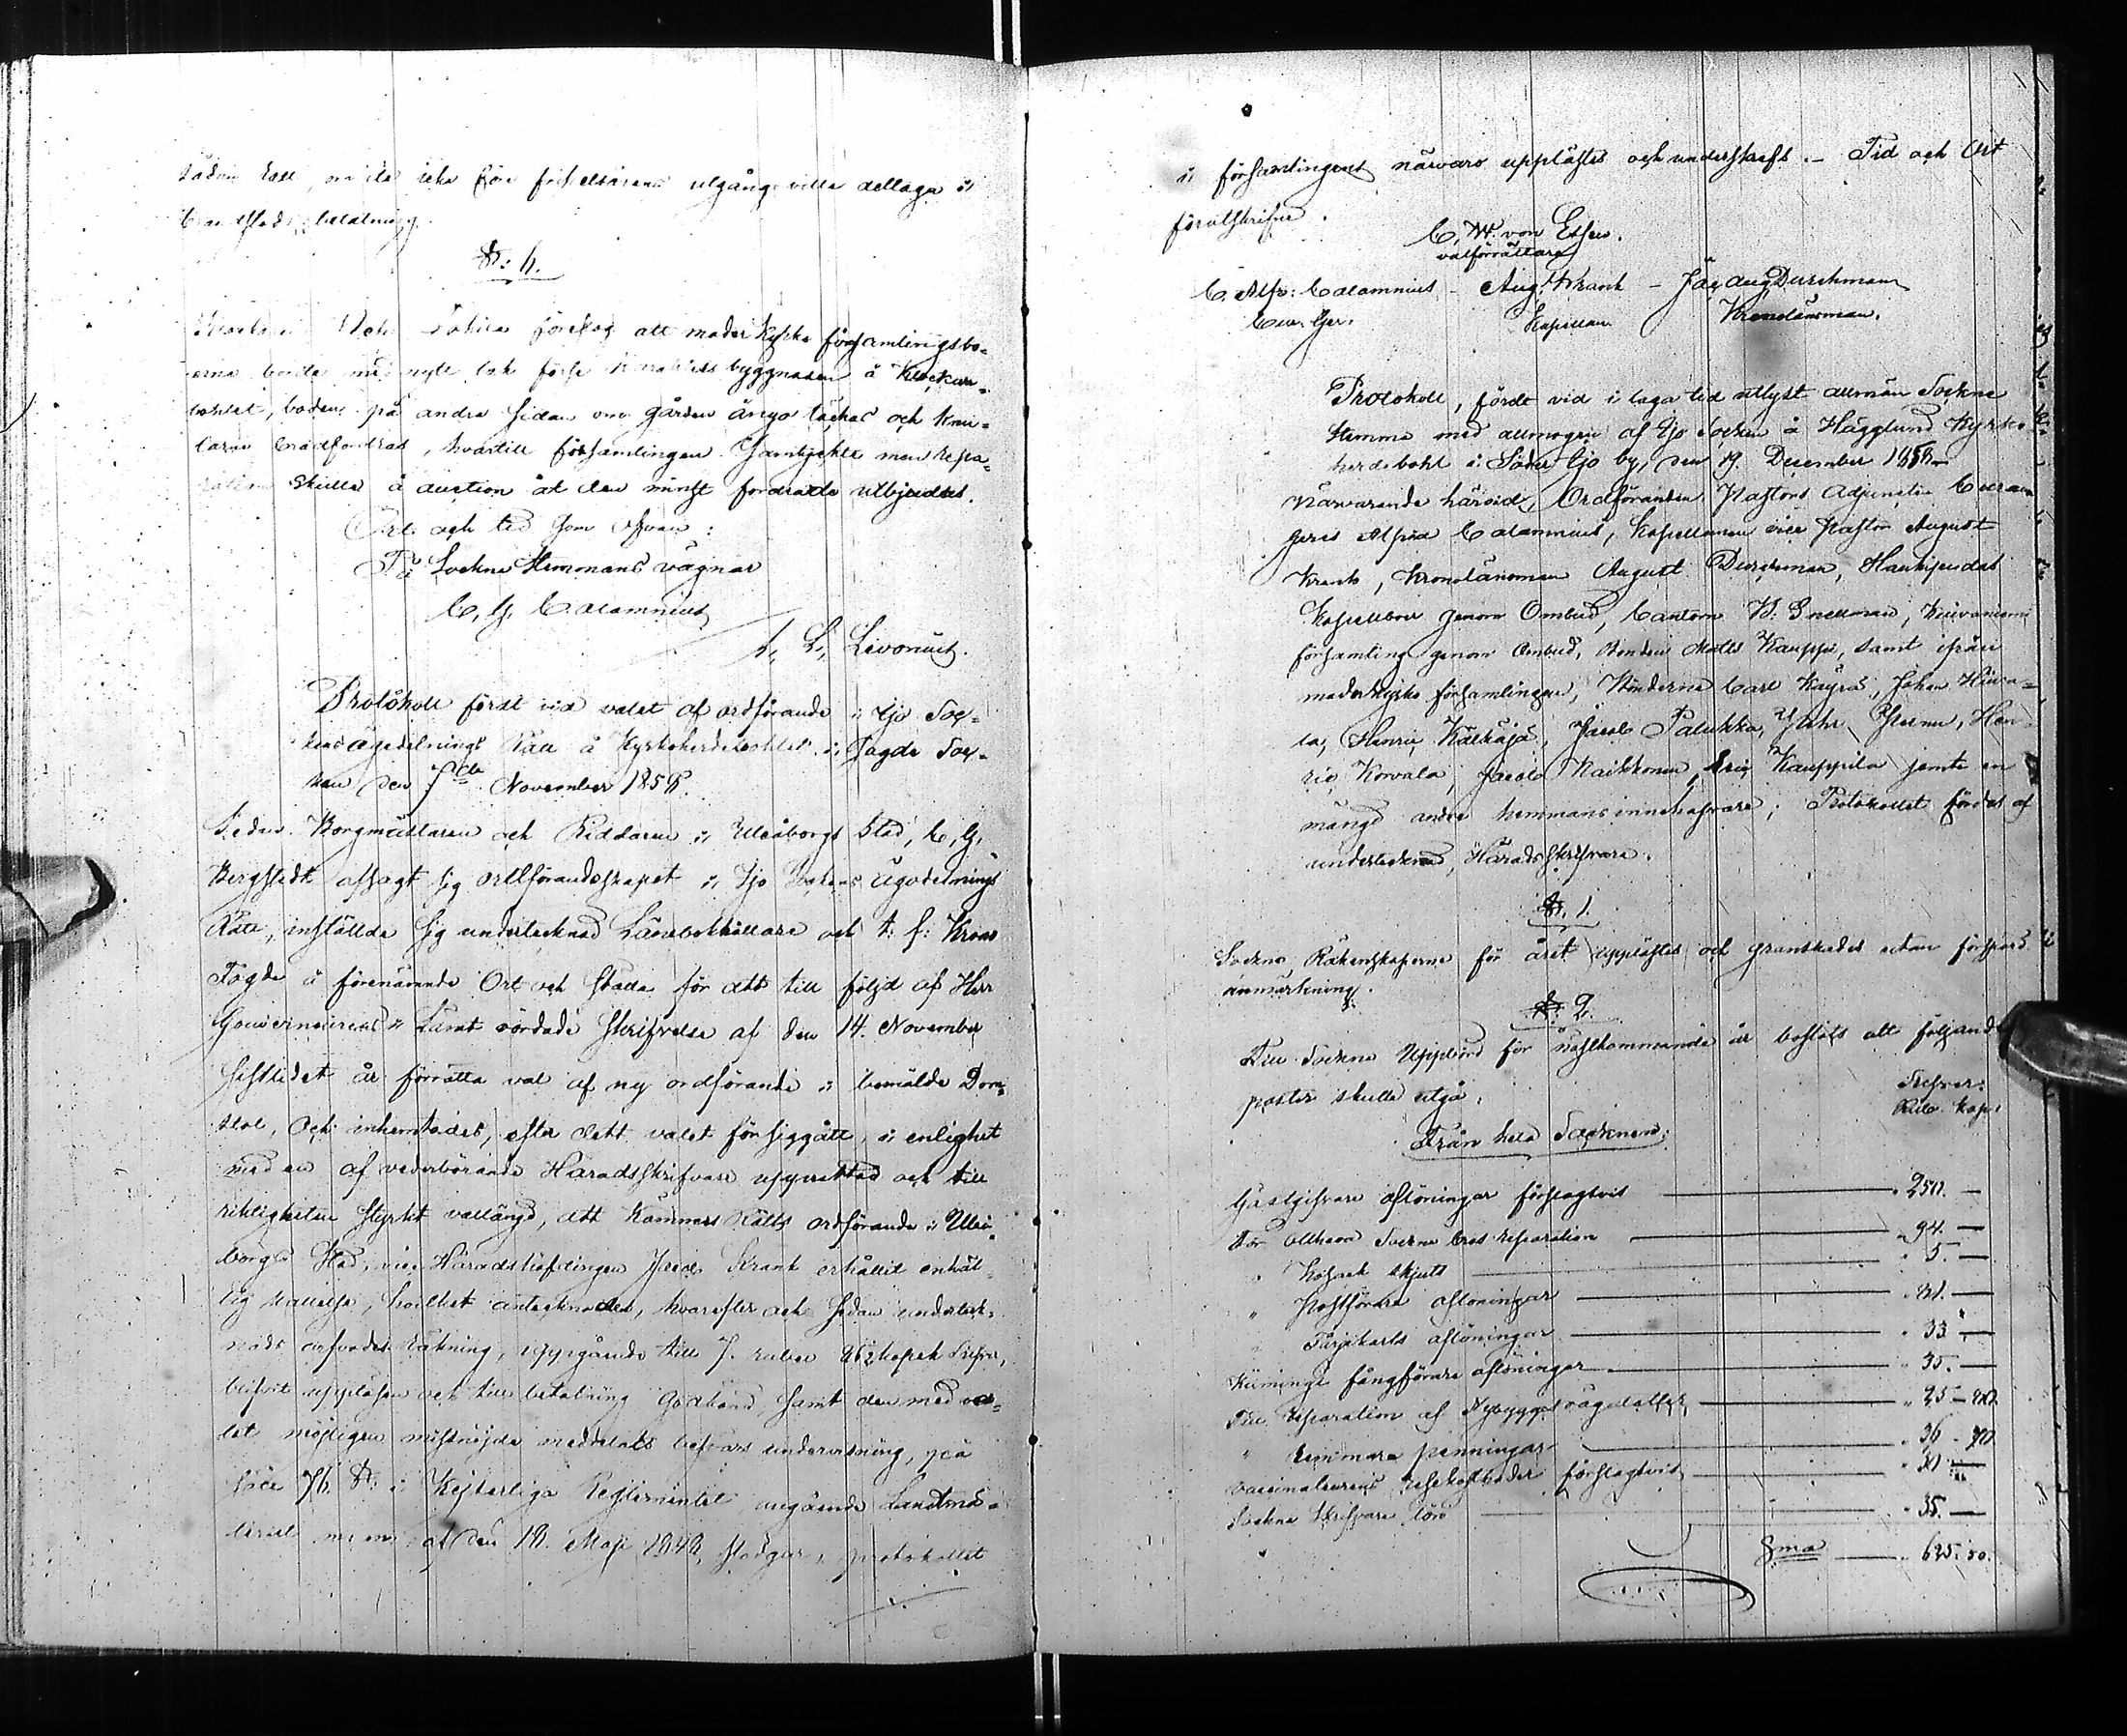 sådan Rätt, om de icke före utgång ville deltaga i
betalning.
§: 6.
föreslog att moder kyrko församlingsbo-
erne borde med nytt tak förse byggnaden å Klockare-
bohlet, boden på andra sidan om gården å nyo täckas och knu-
tarne brädfodras, hvartill församlingen samtyckte men repa-
ration skulle å auction åt den minst fordrande utbjudas.
Ort och tid som ofvan:
På Sockne Stemmans vägnar
C. G. Calamnius
L. Livonius.
Protokoll fördt vid valet af ordförande i Ijo Soc-
kens ägodelnings Rätt å Kyrkoherdebohlet i sagde Soc-
ken den 7de November 1858.
Sedan Borgmästaren och Riddaren i Uleåborgs Stad, C. G.
Bergstedt afsagt sig ordförandskapet i Ijo Sockens ägodelnings
Rätt, instälde sig undertecknad Länebokhållare och t: f: Krono
Fogde å förenämnde Ort och ställe för att till följd af Herr
Gouverneurens i Länet vördade skrifvelse af den 14. November
sistledet år förrätta val af ny ordförande i bemälde Dom-
stol, och inhemtades, efter dett valet försiggått, i enlighet
med en af vederbörande Häradsskrifvare upprättad och till
riktigheten styrkt vallängd, att Kämners Rätts ordförande i Uleå-
borgs Stad, vice Häradshöfdingen Krank erhållit enhäl-
lig kallelse, hvilket antecknades, hvarefter och sedan underteck-
nads arfvodes Räkning, uppgående till 7. rubel kopek Silfver,
blifvit uppläsen och till betalning godkänd samt den med va-
let möjligen missnöjde meddelats besvärs undervisning, på
sätt 76. §: i Kejserliga Reglementet angående Landtmä-
teriet m: m: af den 18. Maji 1848, stadgar, protokollet
i församlingens närvaro upplästes och underskrefs. – Tid och Ort
förutskrifne.
C. W. von Essen.
valförrättare
C. Alfr: Calamnius – Aug. Krank – Jac. Aug. Durchman
Cur. Ger. Kapellan Kronolänsman.
Protokoll, fördt vid i laga tid utlyst allmän Sockne
stemma med allmogen af Ijo Socken å Hägglund Kyrko-
herdebohl i Söder Ijo by, den 19. December 1858.
Närvarande härvid, Ordföranden Pastors Adjuncten Curam
geris Alfred Calamnius, Kapellanen vice Pastor August
Krank, Kronolänsman August Durchman, Haukipudas
Kapellboer genom Ombud, Cantorn W: Snellman, Kuivaniemi
församling genom Ombud, Bonden Matts Kauppi, samt ifrån
moderkyrko församlingen, Bönderne Carl Käyrä, Johan
Henric Jacob Palukka, Hen-
ric Kowala, Jacob Kaikkonen, Eric Kauppila jemte en
mängd andra hemmans innehafvare; Protokollet fördes af
undertecknad, Häradsskrifvare.
§. 1.
Sockne Räkenskaperne för året upplästes och granskades utan förspord
anmärkning.
§: 2.
Till Sockne Uppbörd för nästkommande år beslöts att följande
poster skulle utgå.
Silfver.
Rub. Kop.
Från hela Socknen.
Gästgifvare aflöningar förslagsvis 250. —
För Sockne reparation 94. —
" skjuts 5. —
" Postförare aflöningar 81. —
" Färjekarls aflöningar 33. —
Kiiminge fångförare aflöningar 35. —
Till Reparation af Nybygges vägstolpar 25 –
" penningar 36 –
Vaccinateurens resekostnader förslagsvis
Sockne Skrifvare lön 35. —
Sma 625: 50.